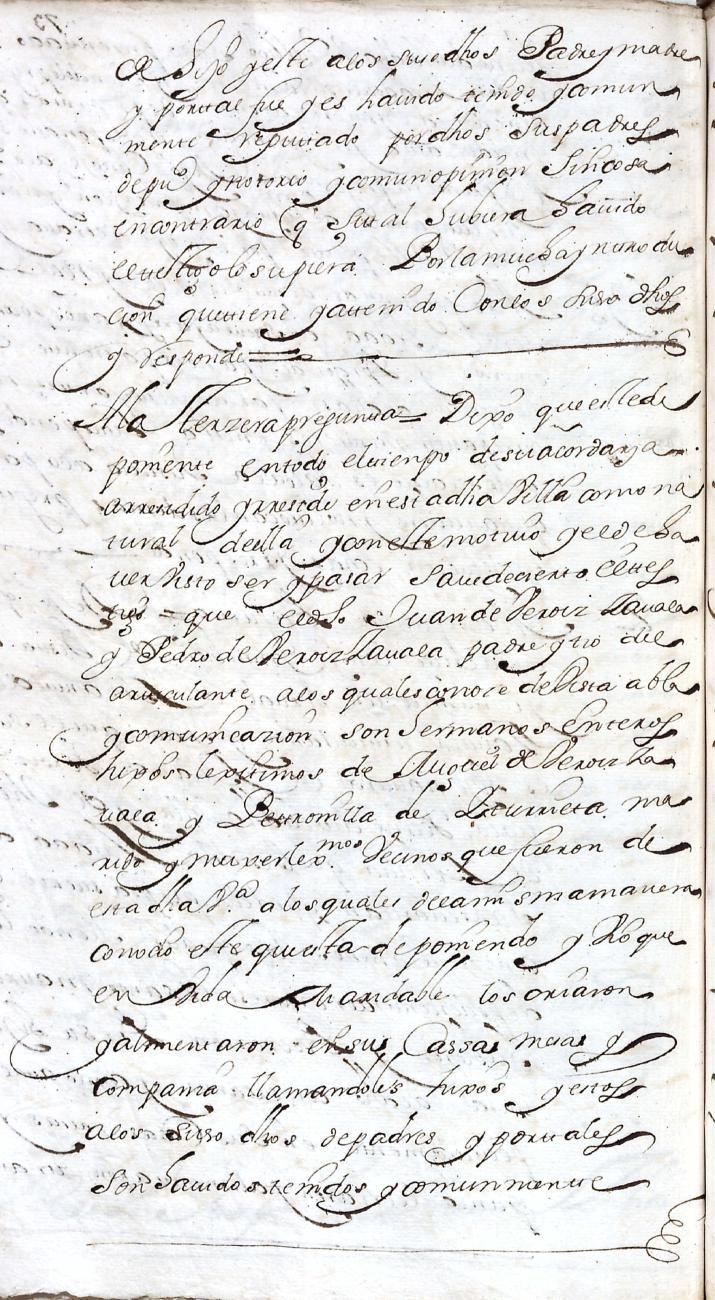 de hijo y este a los suso dhos Padre y madre
y por tal fue y es havido tenido y comun
mente reputado por dhos sus padres
de pu.co y notorio y comun opinion sin cosa
en contrario q si tal hubiera havido
el testigo lo supiera Por la mucha ynttrodu
cion que ttiene y a ttenido Con los suso dhos
y responde
A la tterzera pregunta = Dixo que este de
ponente en todo el tiempo de su acordanza a
residido y rreside en esta dha Villa como na
tural de ella y con este motivo y el de ha
ver visto ser y pasar save de cierto el tes
tigo = que el dho Juan de Veroiz Zavala
y Pedro de Veroiz Zavala padre y tio del
articulante a los quales conoce de Vista abla
y comunicazion son hermanos Enteros
hixos lexitimos de Miguel de Veroiz Za
vala y Petronilla de Yturrieta ma
rido y muxer lex.mos Vecinos que fueron de
esta dha V.a a los quales de la misma manera
conocio este que esta deponiendo y Vio que
en Vida Maridable los criaron
y alimentaron en sus Cassas mesas y
compania llamandoles hixos y estos
a los suso dhos de padres y por tales
son havidos tenidos y comunmente